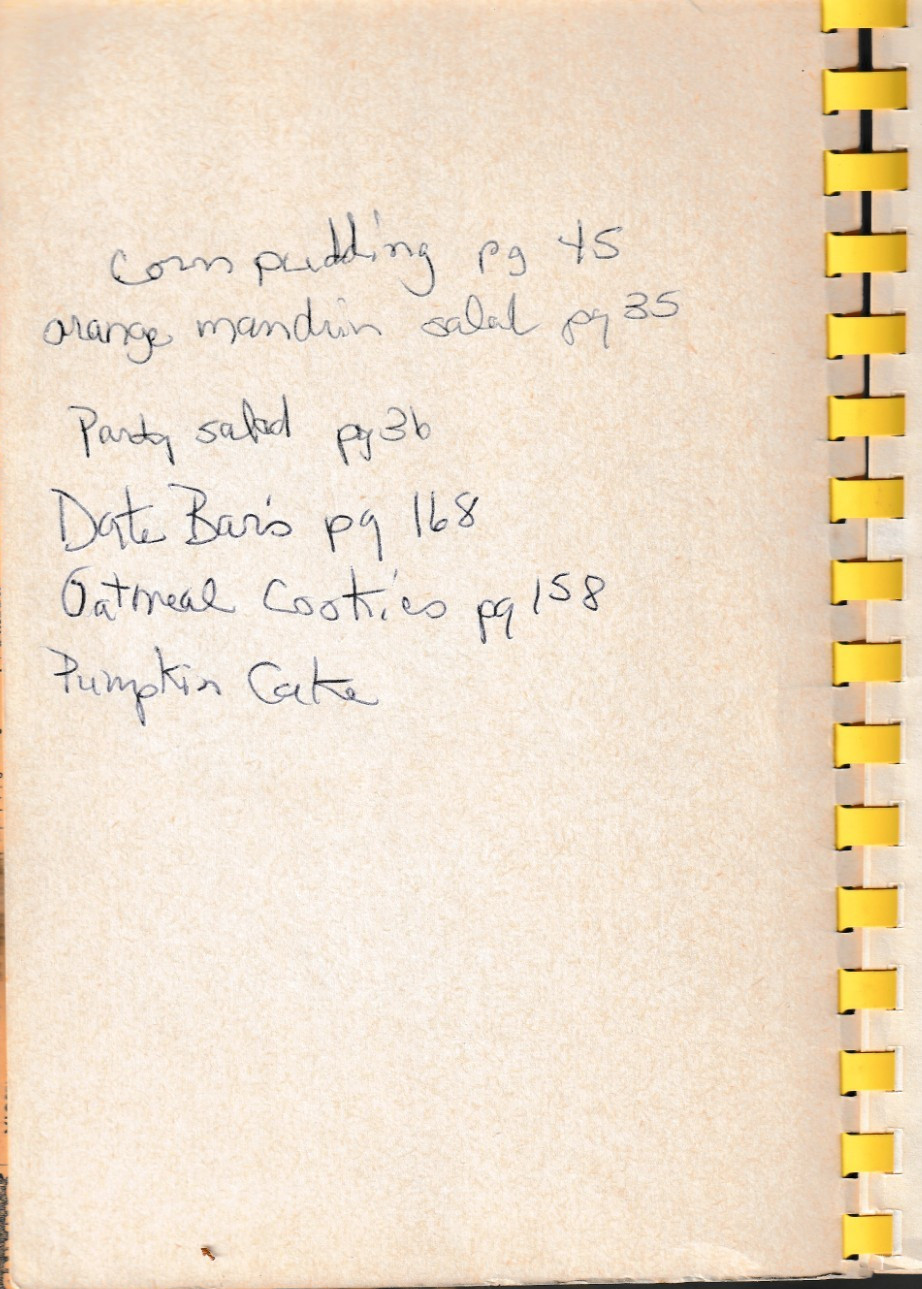 corn pudding pg 45
orange mandrin salad pg 35
Party salad pg 36
Date Bars pg 168
Oatmeal Cookies pg 158
Pumpkin Cake